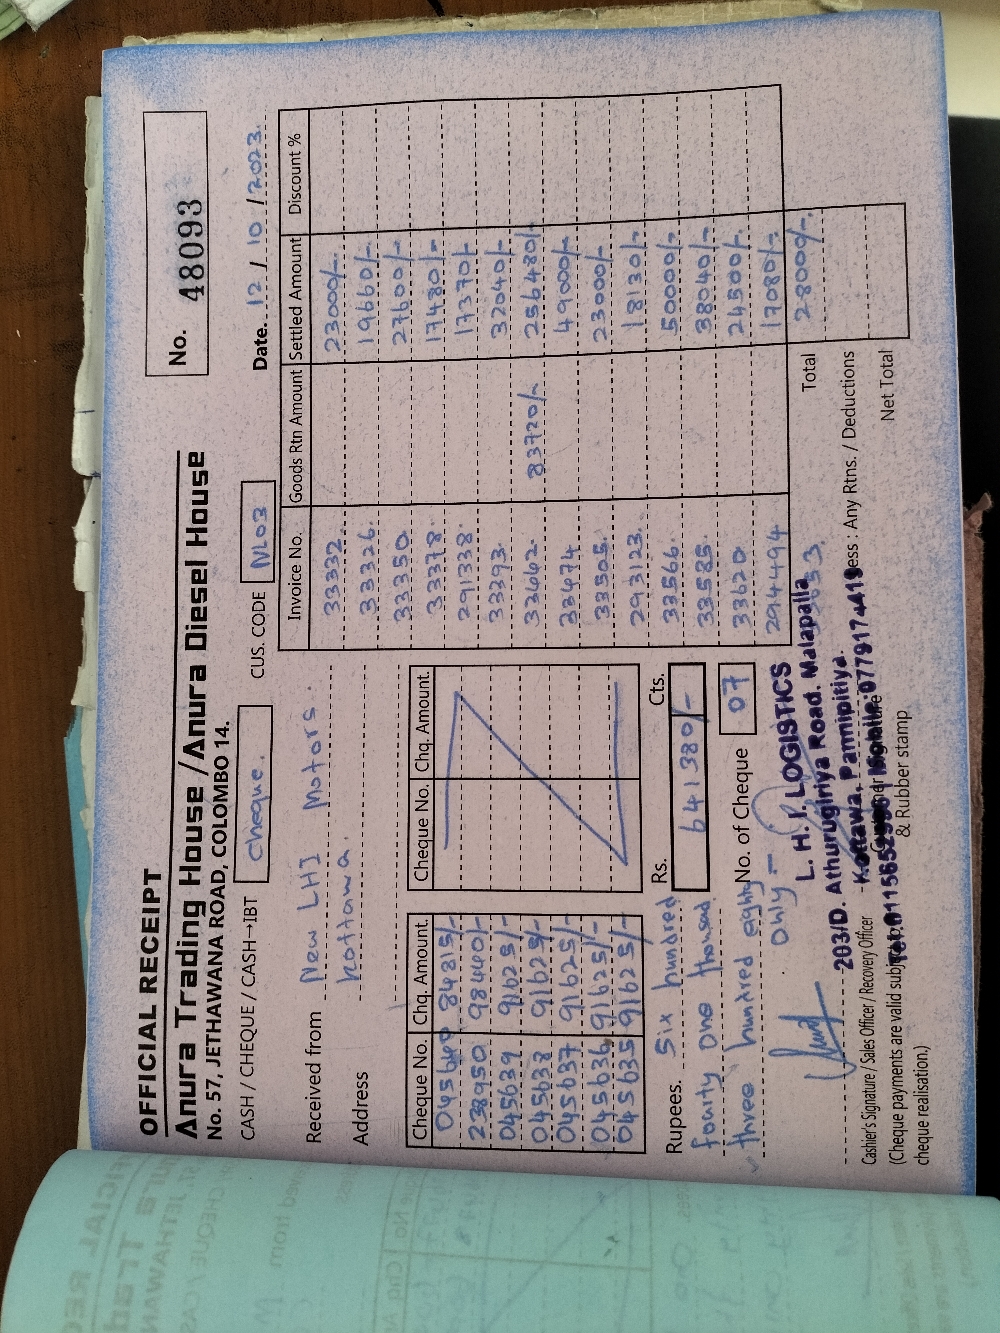 OFFICIAL RECEIPT
No. 48093
Anura Trading House / Anura Diesel House
No. 57, JETHAWANA ROAD, COLOMBO 14.
CASH / CHEQUE / CASH→IBT cheque. CUS. CODE NL03 Date. 12 / 10 / 2023.
Received from New LHI Motors.
Address Kottawa.
Invoice No. Goods Rtn Amount Settled Amount Discount %
33332. 23000/-
33326. 19660/-
33350. 27600/-
33378. 17480/-
291338. 17370/-
33393. 32040/-
33462. 83720/- 256480/-
33474. 49000/-
33505. 23000/-
293123. 18130/-
33566. 50000/-
33585. 38040/-
33620 24500/-
294494 17080/-
33653. 28000/-
Total
Less : Any Rtns. / Deductions
Net Total
Cheque No. Chq. Amount. Cheque No. Chq. Amount.
045640 84815/-
238950 98440/-
045639 91625/-
045638 91625/-
045637 91625/-
045636 91625/-
045635 91625/-
Rupees. Six hundred
fourty one thousand
three hundred eighty
only -
Rs. Cts.
641380/-
No. of Cheque 07
L. H. I. LOGISTICS
203/D. Athurugiriya Road. Malapalla
Kottawa, Pannipitiya.
Mobile:0779174419
Cashier's Signature / Sales Officer / Recovery Officer
Customer Signature
& Rubber stamp
(Cheque payments are valid subject to
cheque realisation.)